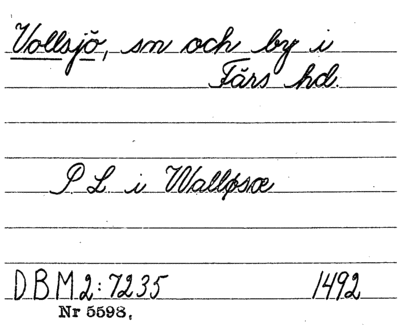 Vollsjö, sn och by i
Färs hd.
P L i Walløsæ
DBM 2:7235 1492
Nr 5598.